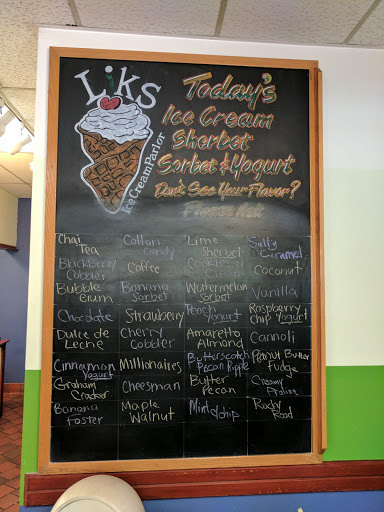 LiKS
Ice Cream Parlor
Today's
Ice Cream
Sherbet
Sorbet & Yogurt
Don't See Your Flavor?
Please Ask
Chai
Tea
Cotton
Candy
Lime
Sherbet
Salty
Caramel
Blackberry
Cobbler
Coffee
Cookies
Coconut
Bubble
Gum
Banana
Sorbet
Watermelon
Sorbet
Vanilla
Chocolate
Strawberry
Peach
Yogurt
Raspberry
Chip Yogurt
Dulce de
Leche
Cherry
Cobbler
Amaretto
Almond
Cannoli
Cinnamon
Yogurt
Millionaires
Butterscotch
Pecan Ripple
Peanut Butter
Fudge
Graham
Cracker
Cheesman
Butter
Pecan
Creamy
Praline
Banana
Foster
Maple
Walnut
Mint chip
Rocky
Road